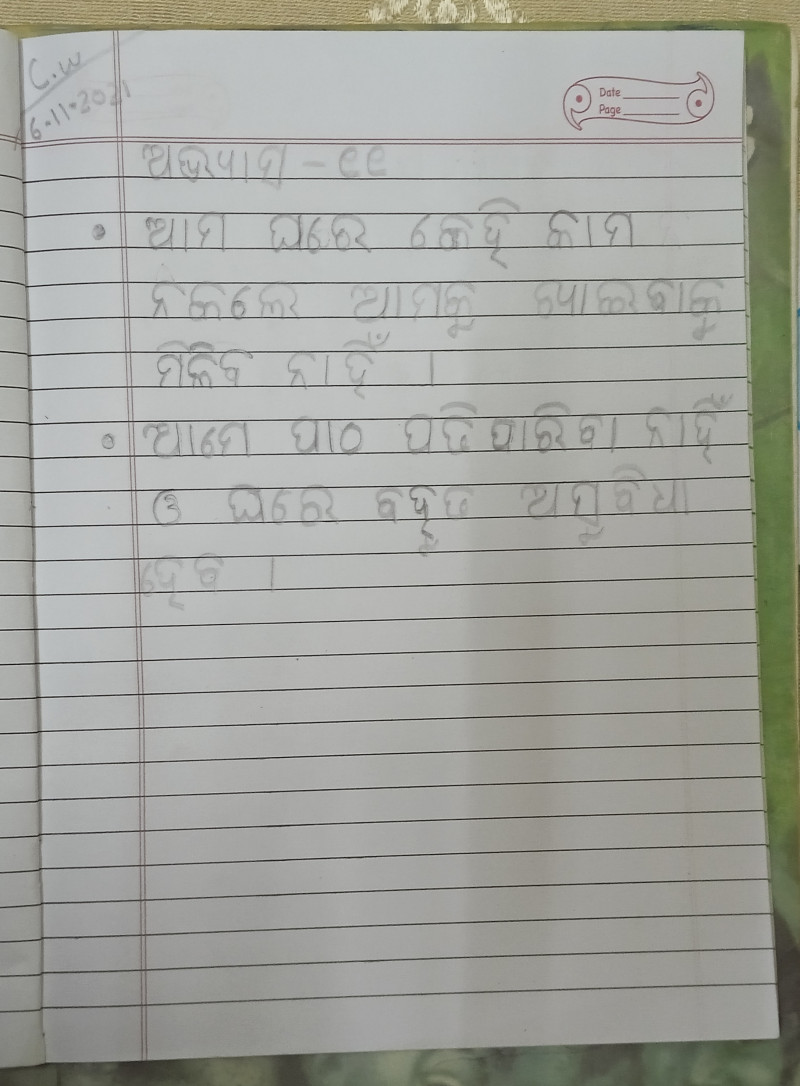 C.W
6-11-2021
Date
Page
ଅଭ୍ୟାସ - ୧୧
ଆମ ଘରେ କେହି କାମ
ନକଲେ ଆମକୁ ଖାଇବାକୁ
ମିଳିବ ନାହିଁ ।
ଆମେ ପାଠ ପଢି ପାରିବା ନାହିଁ
ଓ ଘରେ ବହୁତ ଅସୁବିଧା
ହେବ ।